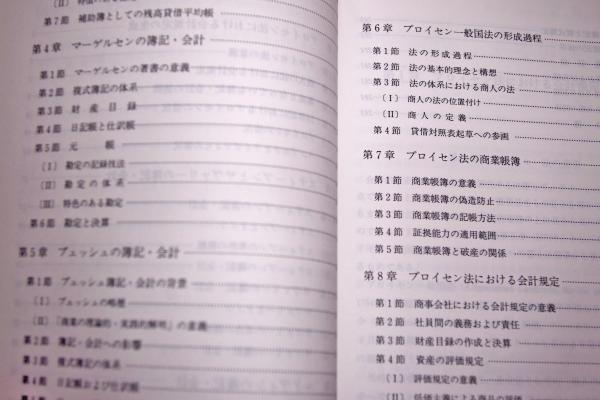 第7節 補助簿としての残高貸借平均帳
第4章 マーゲルセンの簿記・会計
第1節 マーゲルセンの著書の意義
第2節 複式簿記の体系
第3節 財産目録
第4節 日記帳と仕訳帳
第5節 元帳
〔I〕 勘定の記録技法
〔II〕 勘定の体系
〔III〕 特色のある勘定
第6節 勘定と決算
第5章 ブュッシュの簿記・会計
第1節 ブュッシュ簿記・会計の背景
〔I〕 ブュッシュの略歴
〔II〕 『商業の理論的・実践的解明』の意義
第2節 簿記・会計への影響
第3節 複式簿記の体系
第4節 日記帳および仕訳帳
第6章 プロイセン一般国法の形成過程
第1節 法の形成過程
第2節 法の基本的理念と構想
第3節 法の体系における商人の法
〔I〕 商人の法の位置付け
〔II〕 商人の定義
第4節 貸借対照表起草への参画
第7章 プロイセン法の商業帳簿
第1節 商業帳簿の意義
第2節 商業帳簿の偽造防止
第3節 商業帳簿の記帳方法
第4節 証拠能力の適用範囲
第5節 商業帳簿と破産の関係
第8章 プロイセン法における会計規定
第1節 商事会社における会計規定の意義
第2節 社員間の義務および責任
第3節 財産目録の作成と決算
第4節 資産の評価規定
〔I〕 評価規定の意義
〔II〕 低価主義による商品の評価